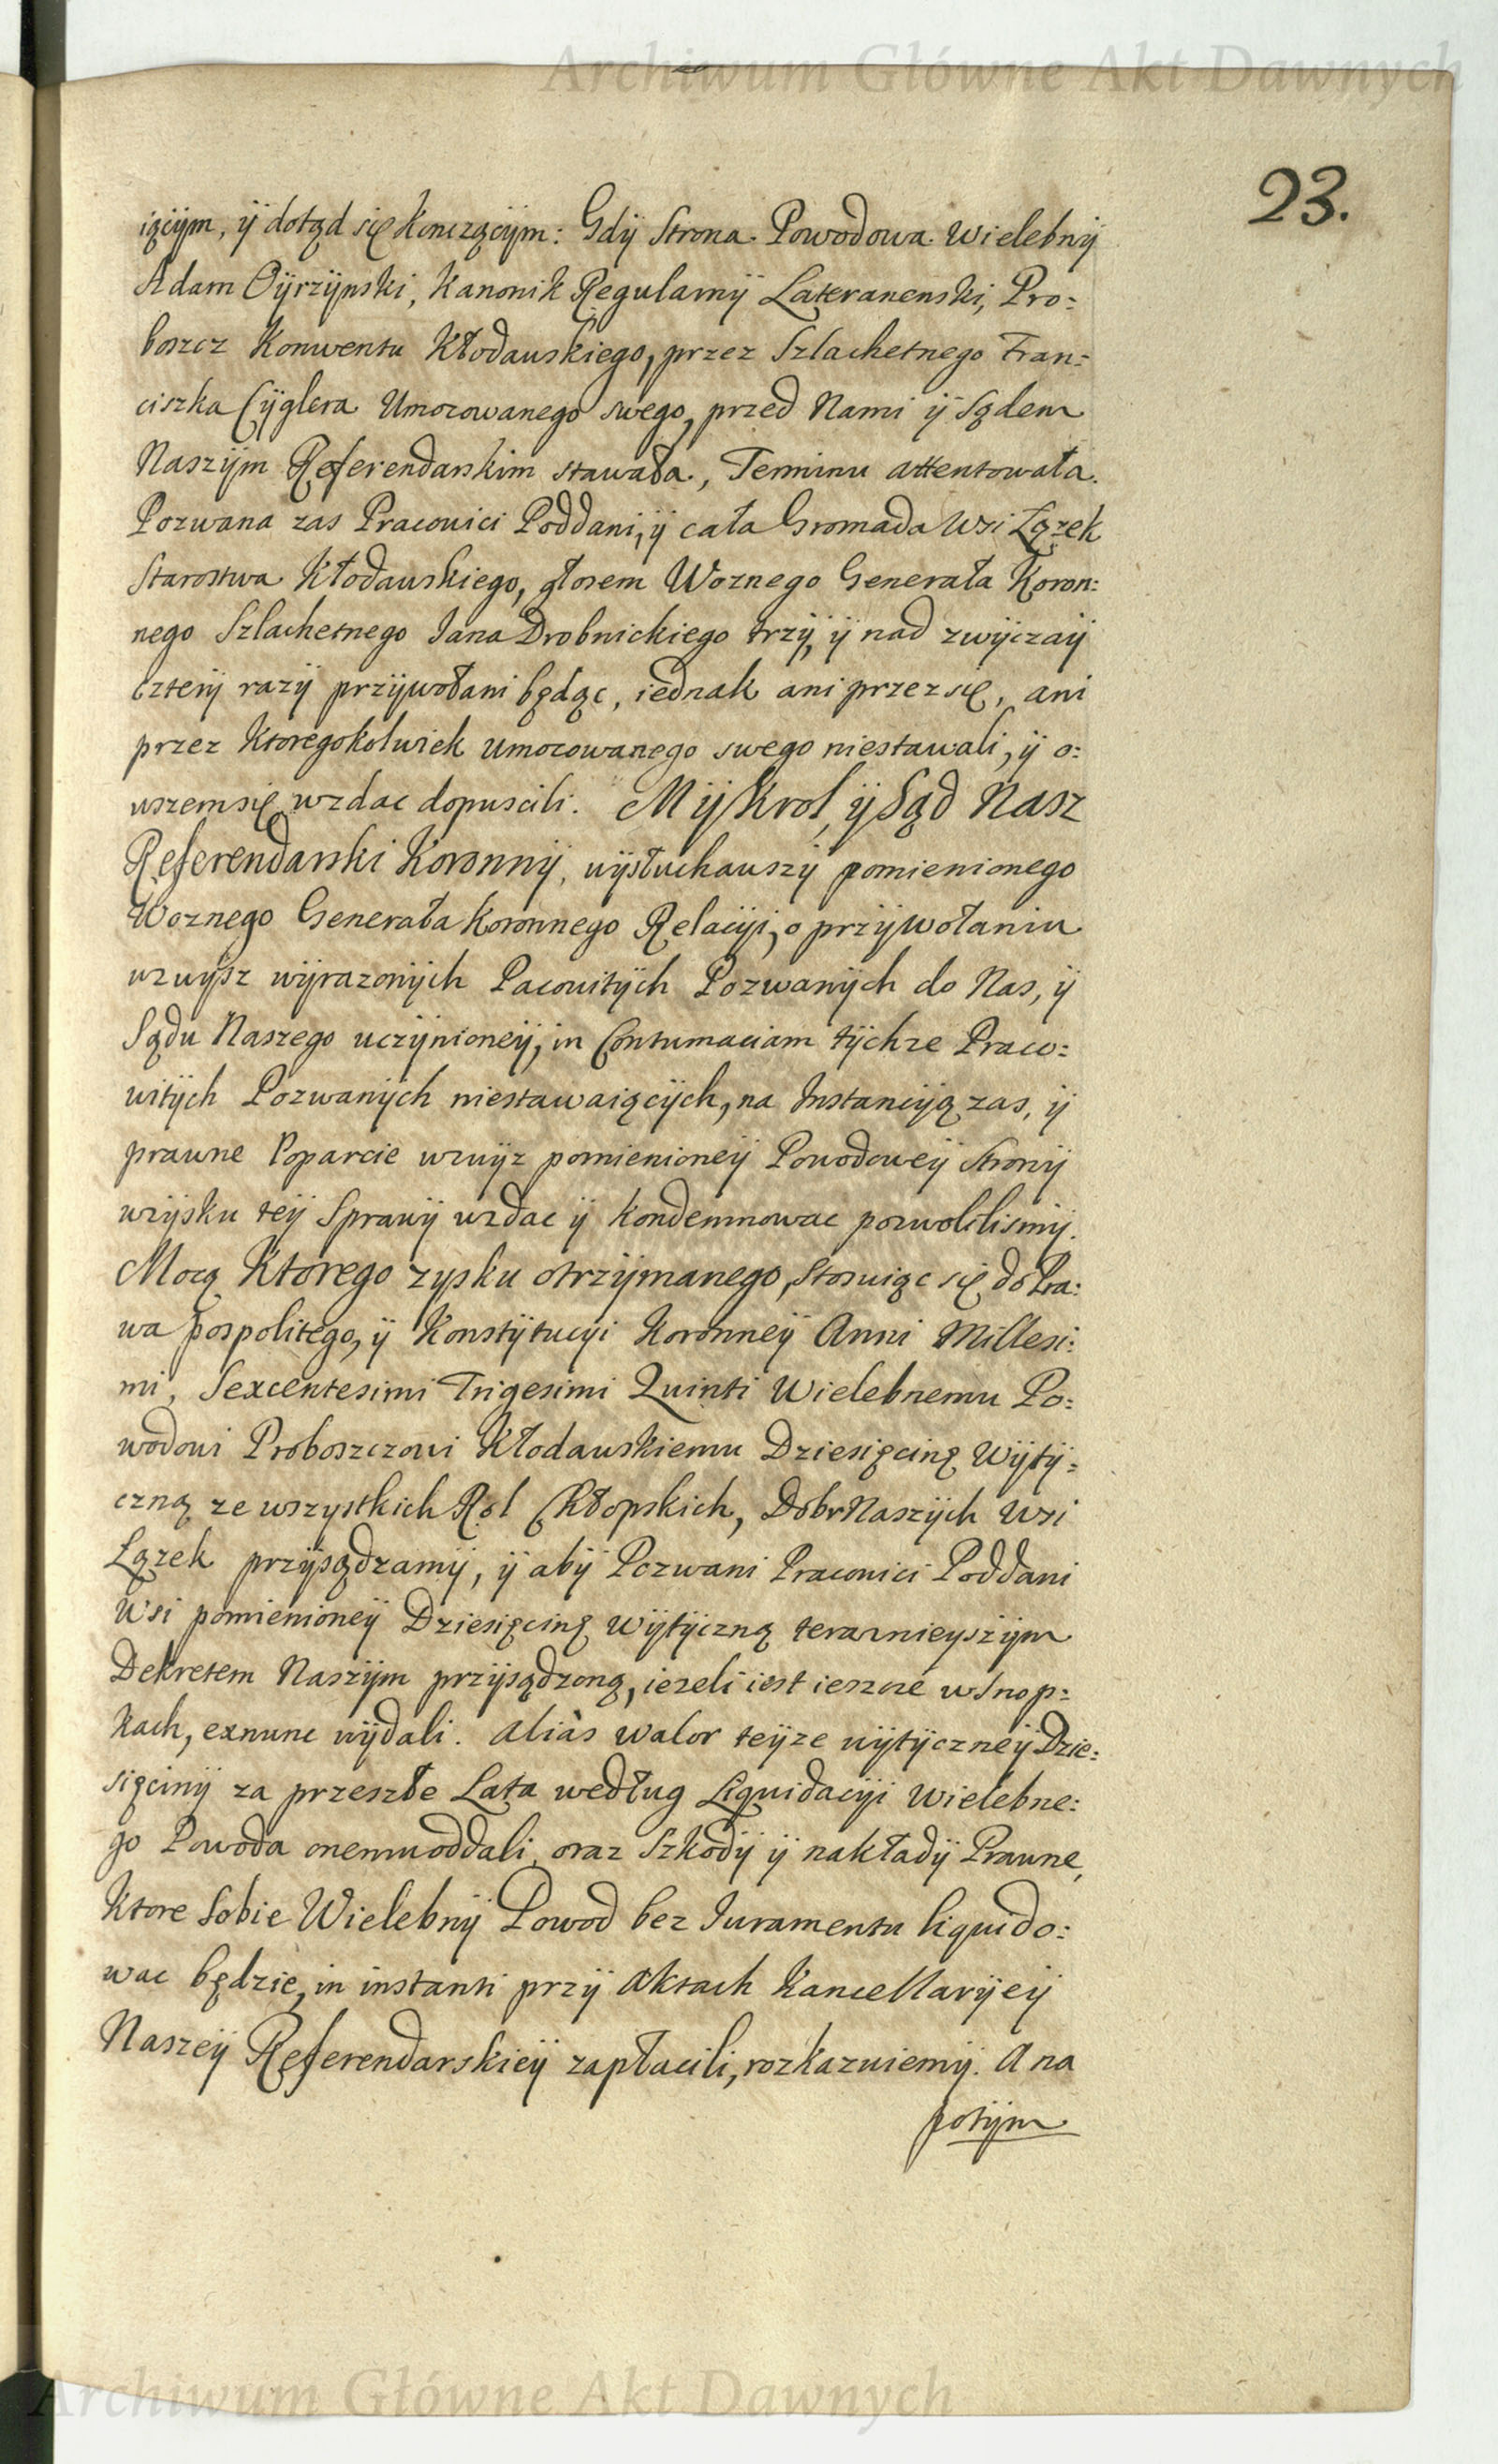 Archiwum Główne Akt Dawnych
23.
iącÿm, ÿ dotąd się konczącÿm: Gdÿ Strona Powodowa Wielebnÿ
Adam Oÿrzÿnski, Kanonik Regularnÿ Lateranenski, Pro:
boszcz Konwentu Kłodawskiego, przez Szlachetnego Fran:
ciszka Cÿglera Umocowanego swego, przed Nami ÿ Sądem
Naszÿm Referendarskim stawała, Terminu attentowała.
Pozwana zas Pracowici Poddani, ÿ cała Gromada Wsi Łązek
Starostwa Kłodawskiego, głosem Woznego Generała Koron:
nego Szlachetnego Iana Drobnickiego trzÿ, ÿ nad zwÿczaÿ
czterÿ razÿ przÿwołani będąc, iednak ani przez się, ani
przez Ktoregokolwiek umocowanego swego niestawali, ÿ o:
wszem się wzdac dopuscili. Mÿ Krol, ÿ Sąd Nasz
Referendarski Koronnÿ, wÿsłuchawszÿ pomienionego
Woznego Generała Koronnego Relacÿi, o przÿwołaniu
wzwÿsz wÿrazonÿch Pacowitÿch Pozwanÿch do Nas, ÿ
Sądu Naszego uczÿnioneÿ, in Contumaciam tÿchze Praco:
witÿch Pozwanÿch niestawaiącÿch, na Instancÿą zas, ÿ
prawne Poparcie wzwÿz pomienioneÿ Powodoweÿ Stronÿ
wzÿsku teÿ Sprawÿ wzdac ÿ kondemnowac pozwolilismÿ.
Mocą Ktorego zysku otrzÿmanego, Stosuiąc się do Pra:
wa pospolitego, ÿ Konstÿtucyi Koronneÿ Anni Millesi:
mi, Sexcentesimi Trigesimi Quinti Wielebnemu Po:
wodowi Proboszczowi Kłodawskiemu Dziesięcinę Wÿtÿ:
czną ze wszystkich Rol Chłopskich, Dobr Naszÿch Wsi
Łązek przÿsądzamÿ, ÿ abÿ Pozwani Pracowici Poddani
Wsi pomienioneÿ Dziesięcinę Wÿtÿczną teraznieyszÿm
Dekretem Naszÿm przÿsądzoną, iezeli iest ieszcze w Snop:
kach, exnunc wÿdali. Aliàs walor teÿze wÿtÿczneÿ Dzie:
sięcinÿ za przeszłe Lata według Liquidacÿi Wielebne:
go Powoda onemu oddali, oraz Szkodÿ ÿ nakładÿ Prawne,
Ktore Sobie Wielebnÿ Powod bez Iuramentu liquido:
wac będzie, in instanti przÿ Aktach Kancellarÿeÿ
Naszeÿ Referendarskieÿ zapłacili, rozkazuiemÿ. A na
potÿm
Archiwum Główne Akt Dawnych